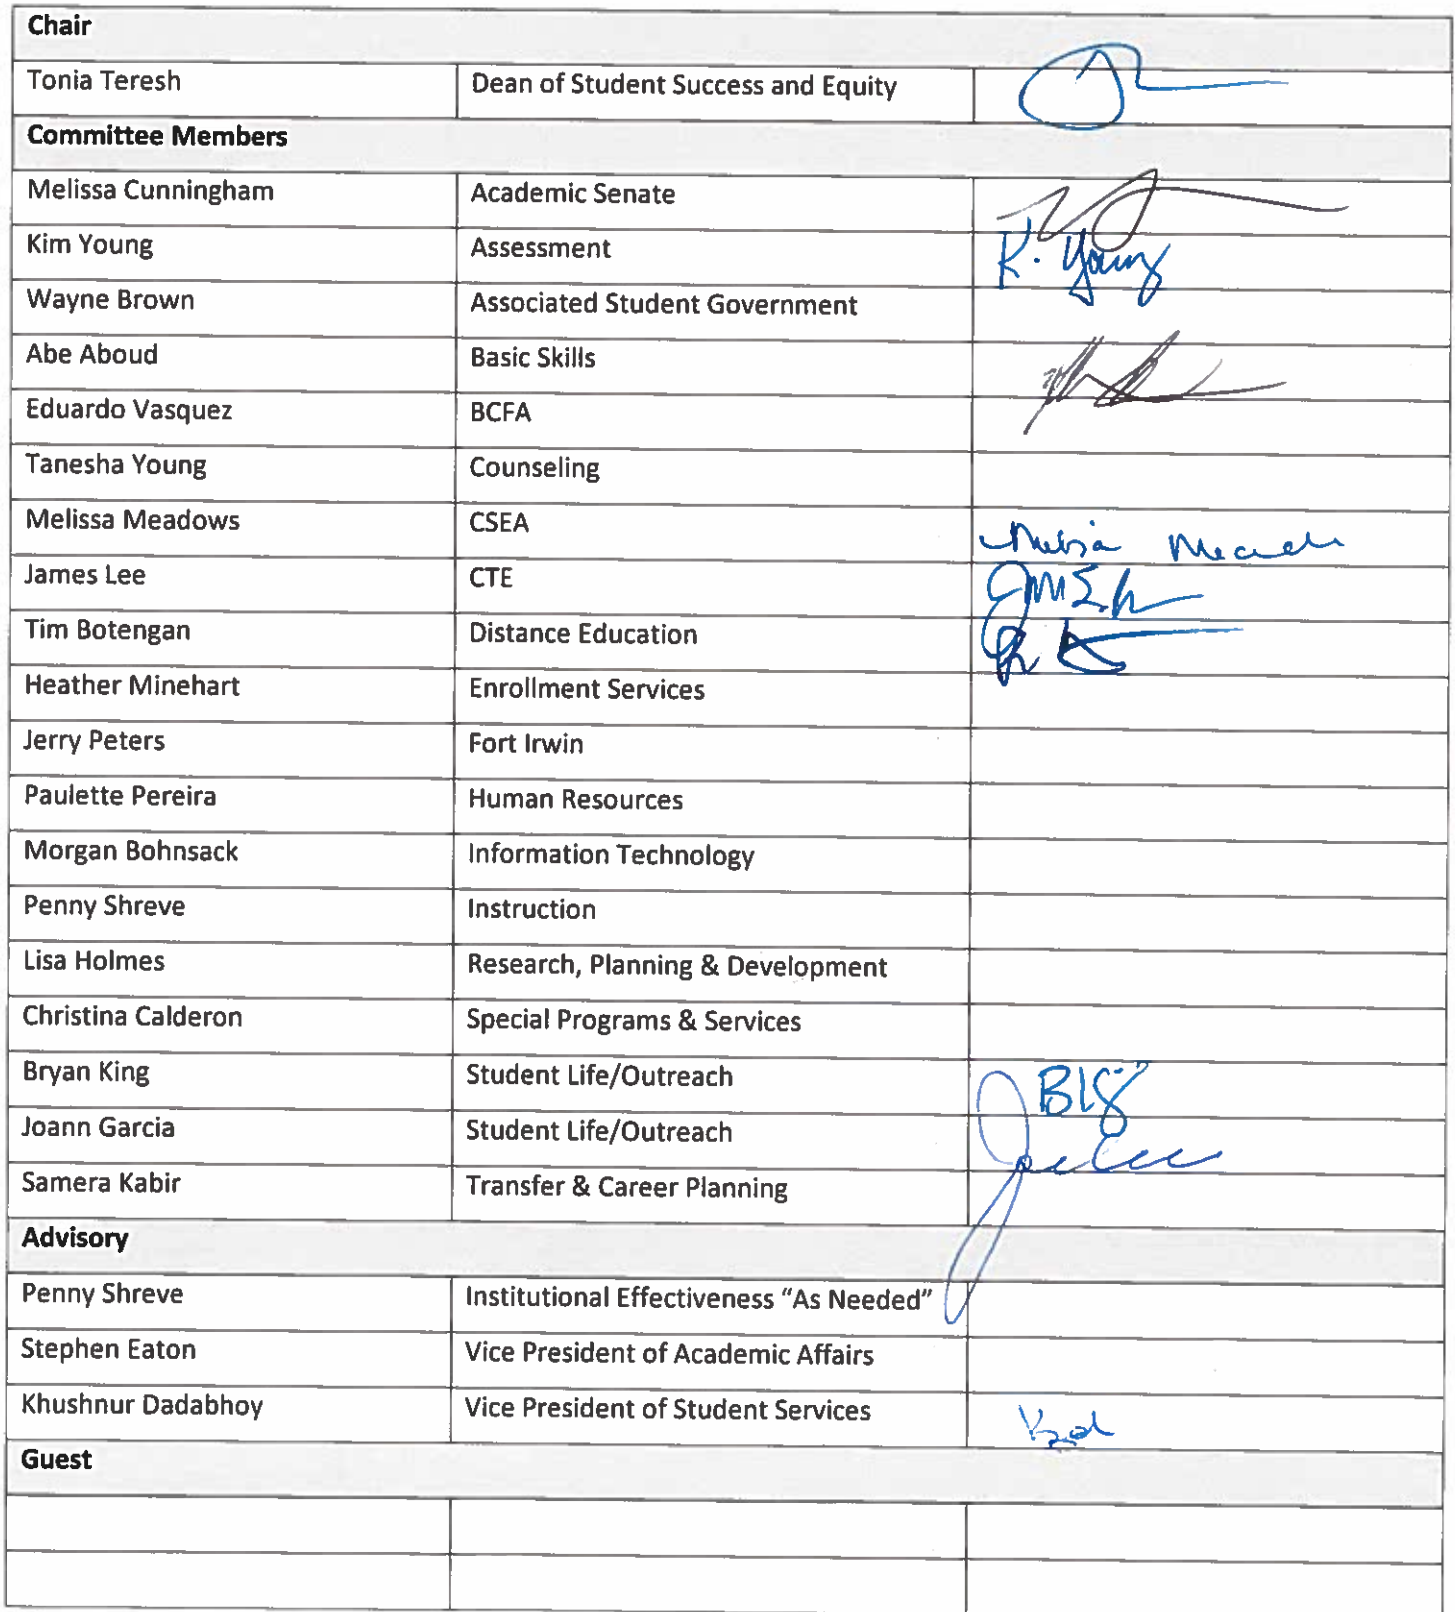 Chair
Tonia Teresh Dean of Student Success and Equity
Committee Members
Melissa Cunningham Academic Senate
Kim Young Assessment K. Young
Wayne Brown Associated Student Government
Abe Aboud Basic Skills
Eduardo Vasquez BCFA
Tanesha Young Counseling
Melissa Meadows CSEA
James Lee CTE
Tim Botengan Distance Education
Heather Minehart Enrollment Services
Jerry Peters Fort Irwin
Paulette Pereira Human Resources
Morgan Bohnsack Information Technology
Penny Shreve Instruction
Lisa Holmes Research, Planning & Development
Christina Calderon Special Programs & Services
Bryan King Student Life/Outreach
Joann Garcia Student Life/Outreach
Samera Kabir Transfer & Career Planning
Advisory
Penny Shreve Institutional Effectiveness "As Needed"
Stephen Eaton Vice President of Academic Affairs
Khushnur Dadabhoy Vice President of Student Services
Guest